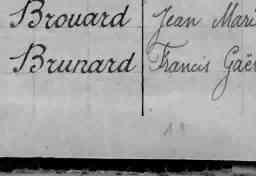 Brouard Jean Mari
Brunard Francis Gaë
11